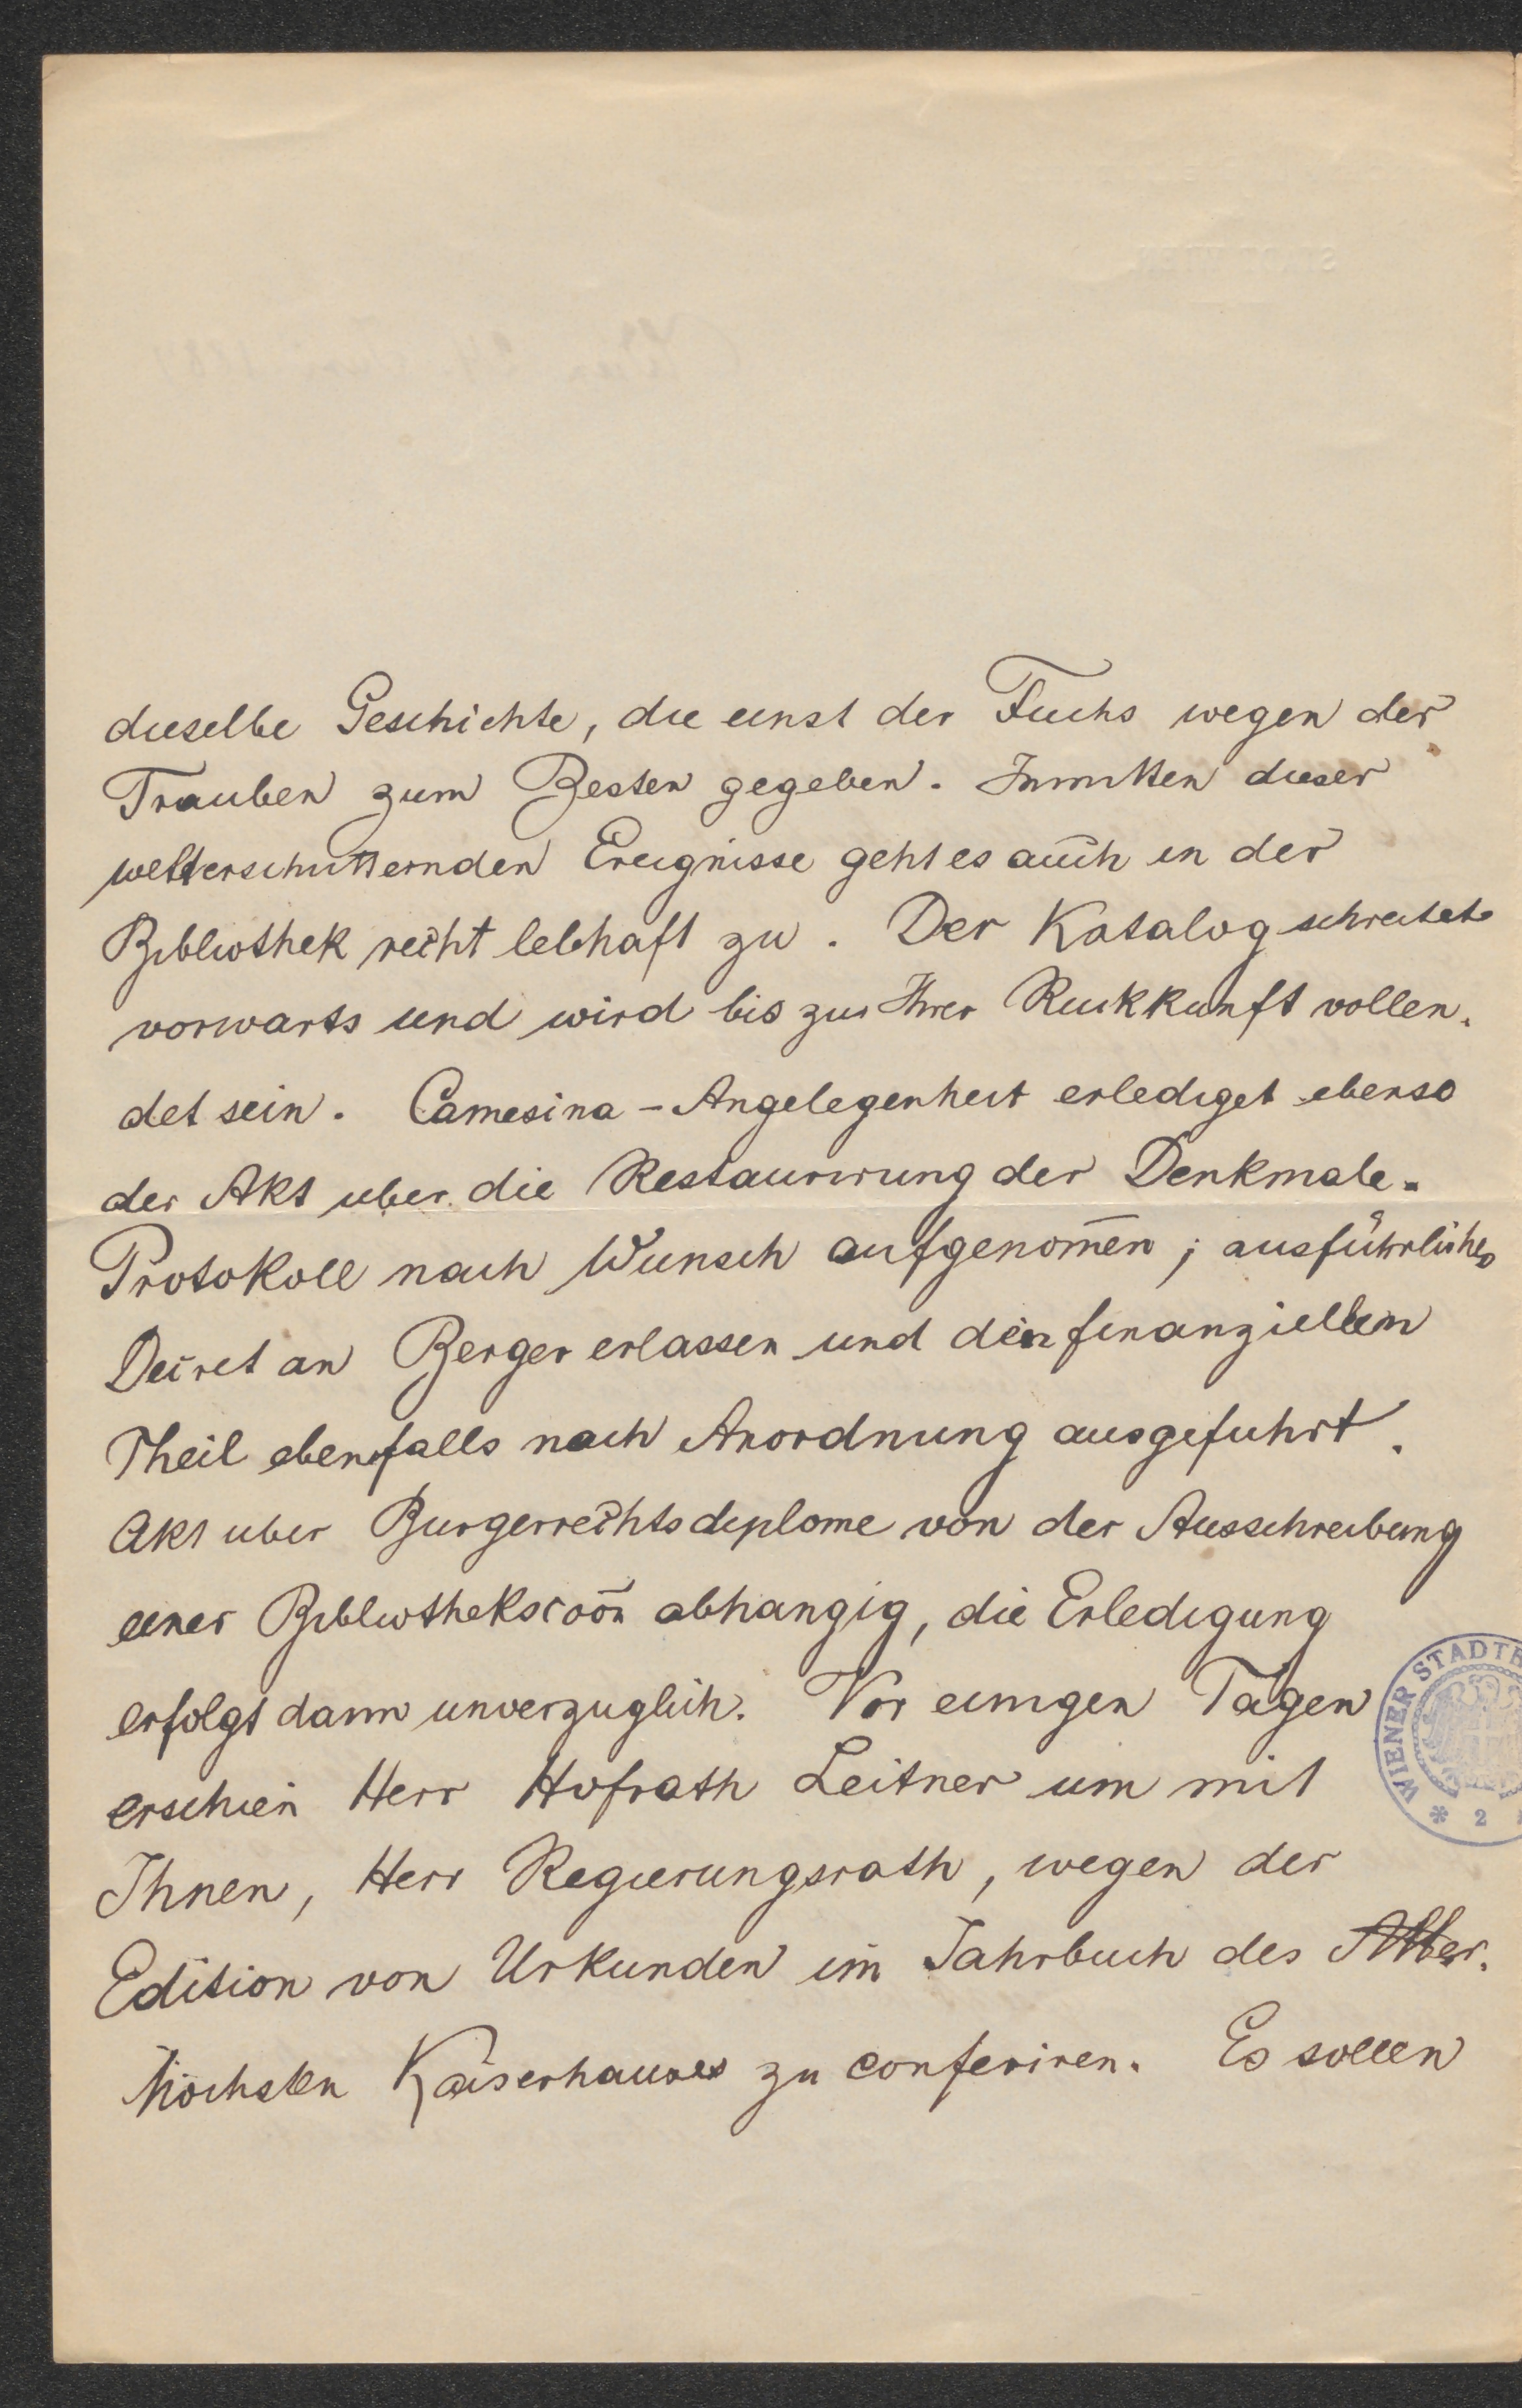 dieselbe Geschichte, die einst der Fuchs wegen der
Trauben zum Besten gegeben. Inmitten dieser
welterschutternden Ereignisse geht es auch in der
Bibliothek recht lebhaft zu. Der Katalog schreitet
vorwarts und wird bis zur Ihrer Ruckkunft vollen.
det sein. Camesina - Angelegenheit erlediget ebenso
der Akt uber die Restaurirung der Denkmale.
Protokoll nach Wunsch aufgenom̄en; ausführliches
Decret an Berger erlassen und den finanziellen
Theil ebenfalls nach Anordnung ausgefuhrt.
Akt uber Burgerrechtsdiplome von der Ausschreibung
einer Bibliotheksco͞on abhangig, die Erledigung
erfolgt dann unverzuglich. Vor einigen Tagen
erschien Herr Hofrath Leitner um mit
Ihnen, Herr Regierungsrath, wegen der
Edition von Urkunden im Jahrbuch des Aller.
höchsten Kaiserhauses zu conferiren. Es sollen
WIENER STADTB
* 2